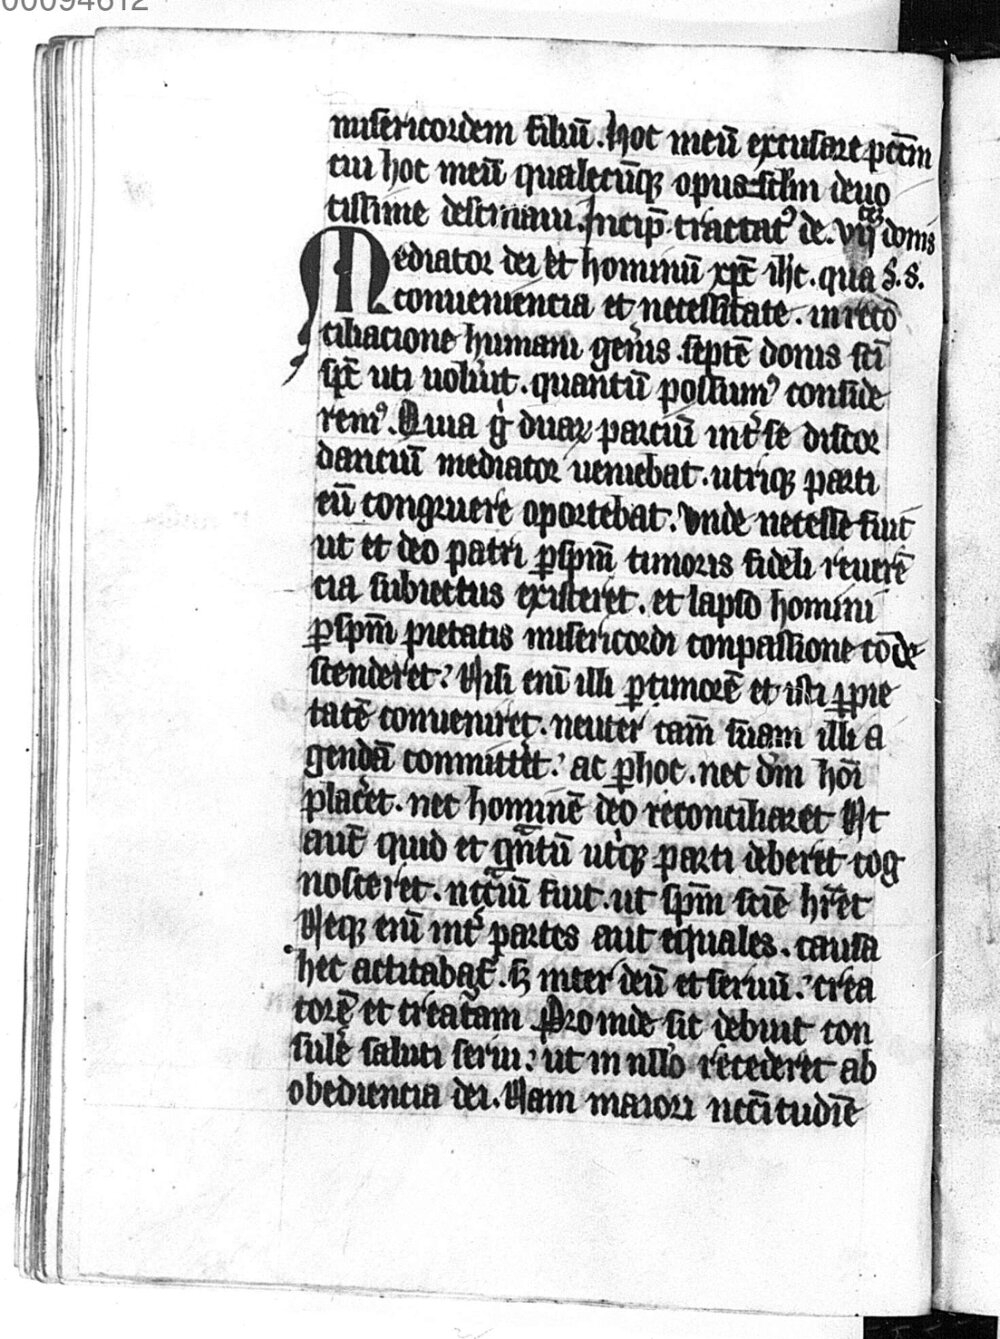 00094612
misericordem filiū. Hoc meū excusare pctm̄
cui hoc meū qualecūqꝫ opus deuo
tissime destinaui. Incip̄ tractatꝰ de. vij donis
Mediator dei et hominū xp̄c ih̄c. qua s. s.
conueniencia et necessitate. in recō
ciliacione humani gen̄is septē donis sc̄i
sp̄c uti uoluit. quantū possumꝰ conside
remꝰ. Quia g̊ duaꝝ parciū int̄ se discor
danciū mediator ueniebat. utriqꝫ parti
eū congruere oportebat. Vnde necesse fuit
ut et deo patri ꝑ sp̄m timoris fideli reuerē
cia subiectus existeret. et lapso homini
ꝑ sp̄m pietatis misericordi conpassione cōde
scenderet? Nisi enī illi ꝑ timorē et isti ꝑ pie
tatē conueniret. neuter cām suam illi a
gendā committ̄et. ac ꝑ hoc. nec dm̄ hōi
placeret. nec hominē deo reconciliaret At
aut̄ quid et qn̄tū ut̄qꝫ parti deberet cog
nosceret. nccīū fuit. ut sp̄m sciē hr̄et
Neqꝫ enī int̄ partes aut equales. causa
hec actitabat̄. sꝫ inter deū et seruū. crea
torē et creatam Proinde sic debuit con
sulē saluti serui? ut in nllō recederet ab
obediencia dei. Nam maiori nccītudīe